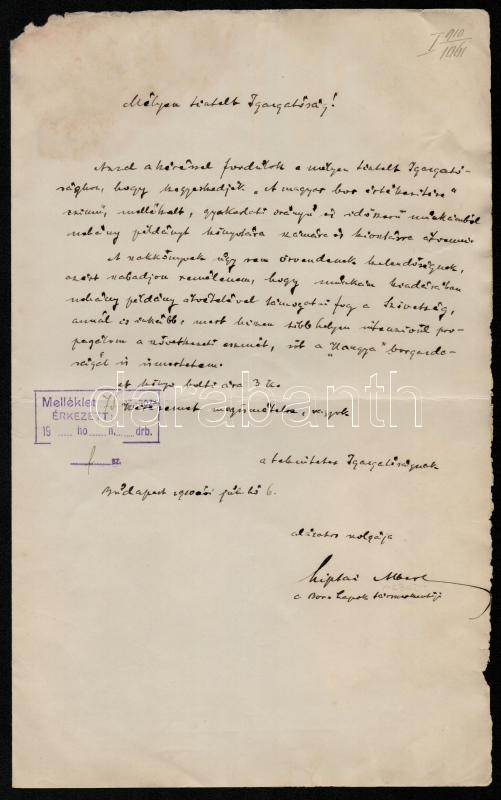 I 910
Mélyen tisztelt Igazgatóság!
Azzal a kéréssel fordulok a mélyen tisztelt Igazgató-
sághoz, hogy kegyeskedjék "A magyar bor értékesitése"
czimü, mellékelt, gyakorlati irányú és időszerű munkámból
nehány példányt könyvtára számára és kiosztásra átvenni.
A szakkönyvek úgy sem örvendenek kelendőségnek,
azért szabadjon remélenem, hogy munkám kiadásában
nehány példány átvételével támogatni fog a Szövetség,
annál is inkább, mert hiszen több helyen intenzivül pro-
pagálom a szövetkezeti eszmét, sőt a "Hangya" borgazda-
ságát is ismertetem.
A könyv bolti ára 3 K.
Kérésemet megismételve, vagyok
Melléklet
ÉRKEZETT:
19 ho n. drb.
sz.
a tekintetes Igazgatóságnak
Budapest 1910 évi júl. hó 6.
alázatos szolgája
Liptai Albert
a Borászati Lapok társszerkesztője
darabanth